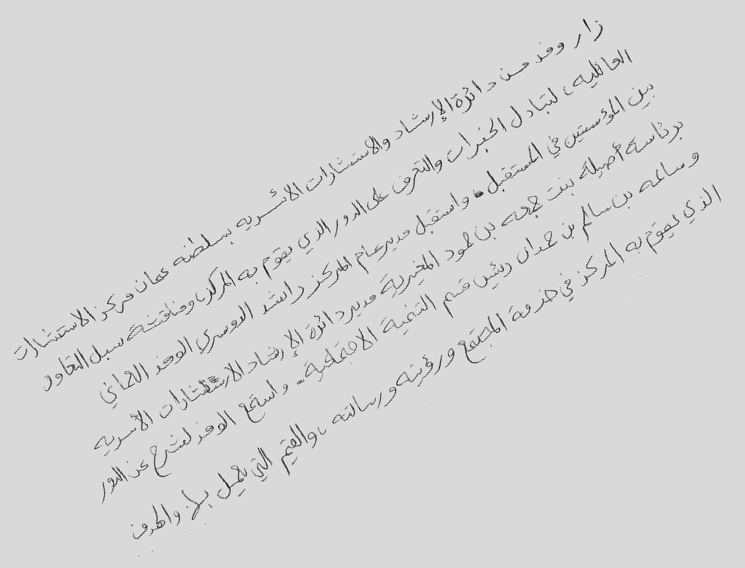 زار وفد من دائرة الإرشاد والاستشارات الأسرية بسلطنة عمان مركز الاستشارات
العائلية، لتبادل الخبرات والتعرف على الدور الذي يقوم به المركز، ومناقشة سبل التعاون
بين المؤسستين في المستقبل. واستقبل مدير عام المركز راشد الدوسري الوفد العماني
برئاسة أصيلة بنت جمعه بن حمود المخيرية مدير دائرة الإرشاد الاستشارات الأسرية
وسالمه بن سالم بن حمدان رئيس قسم التنمية الاجتماعية. واستمع الوفد لشرح عن الدور
الذي يقوم به المركز في خدمة المجتمع ورؤيته ورسالته، والقيم التي يعمل بها والهدف